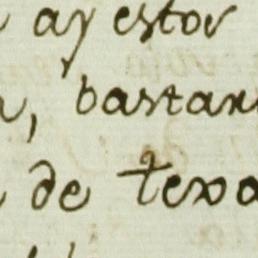 ay estor
, bastan
de texa